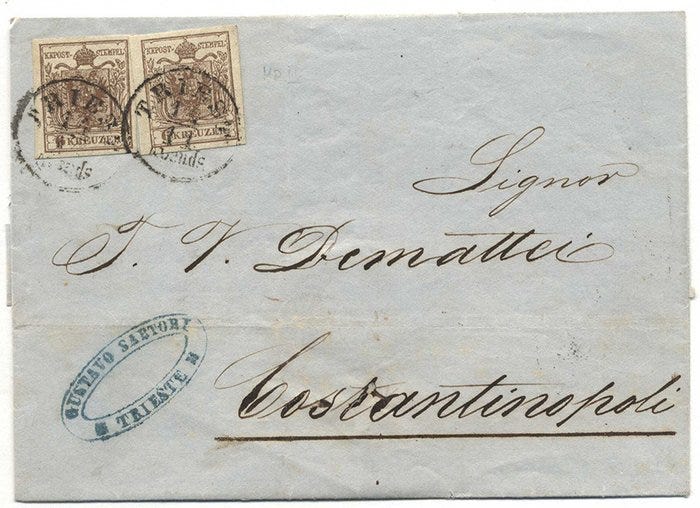 KKPOST-STEMPEL KKPOST-STEMPEL
6 KREUZER 6 KREUZER
TRIEST
Abends
TRIEST
Abends
Signor
T. V. Demattei
Costantinopoli
GUSTAVO SARTORI
TRIESTE